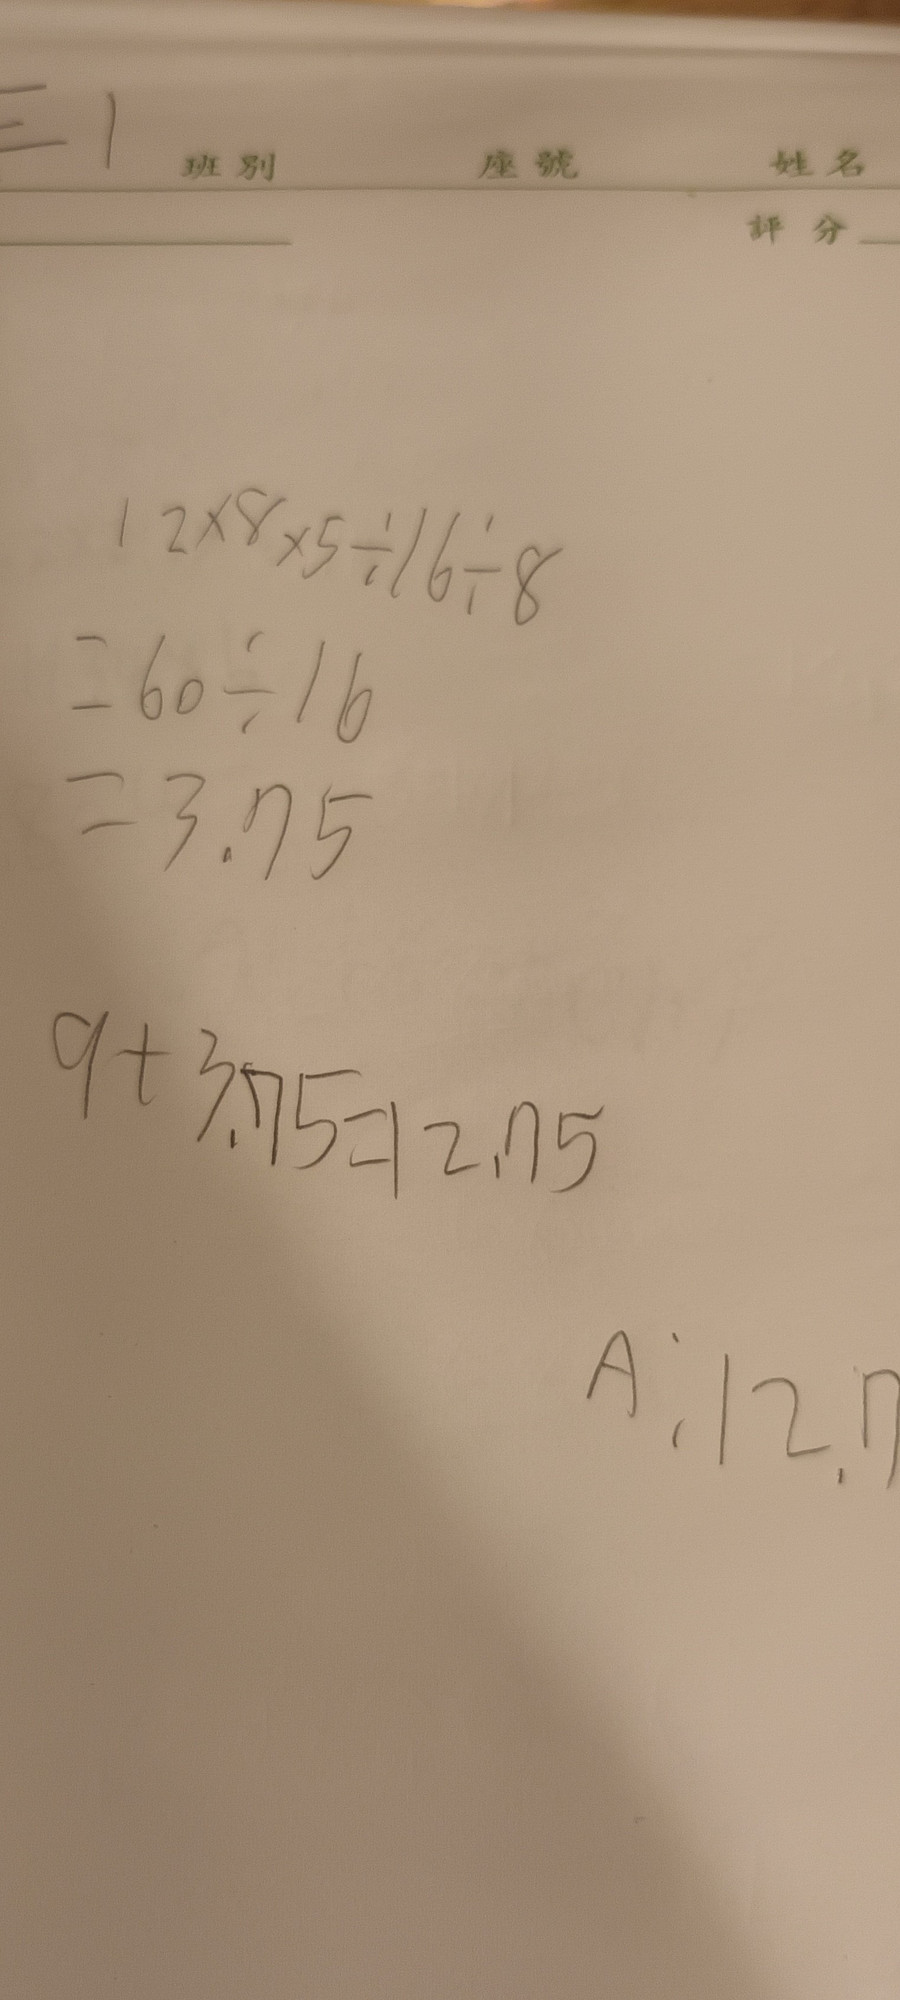 三 1
班別 座號 姓名
評分
12×8×5÷16÷8
=60÷16
=3.75
9+3.75=12.75
A:12.7